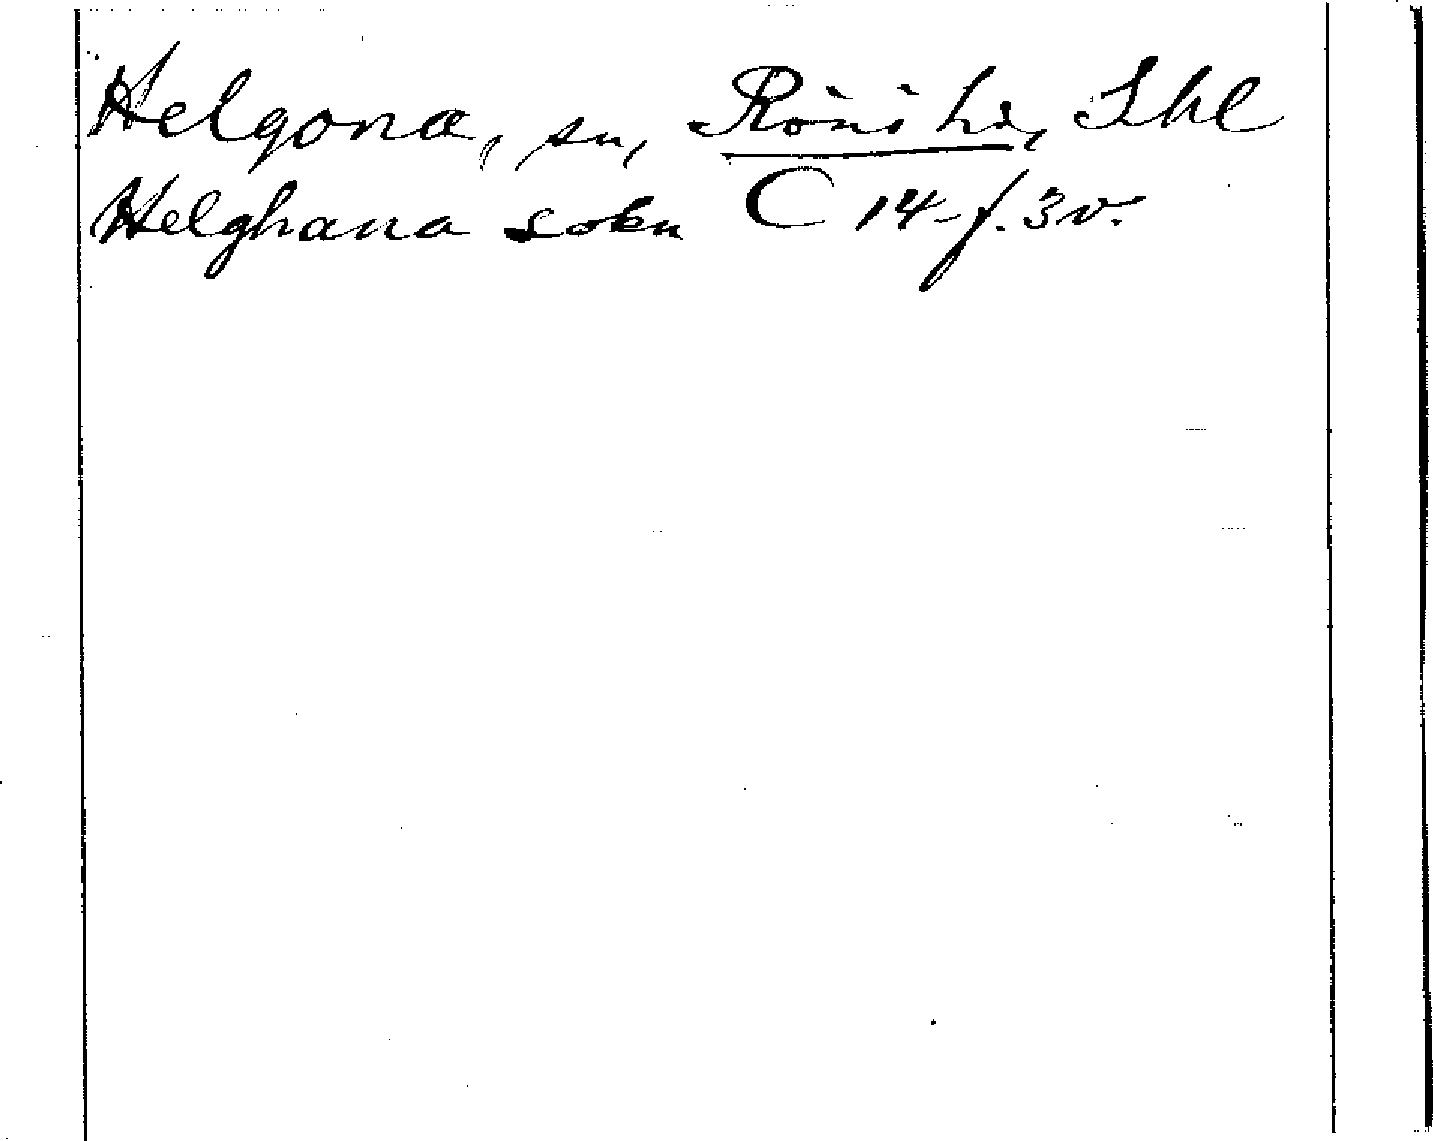 Helgona, sn, Rönö hd, Shl
Helghana sokn C 14 f. 3v.